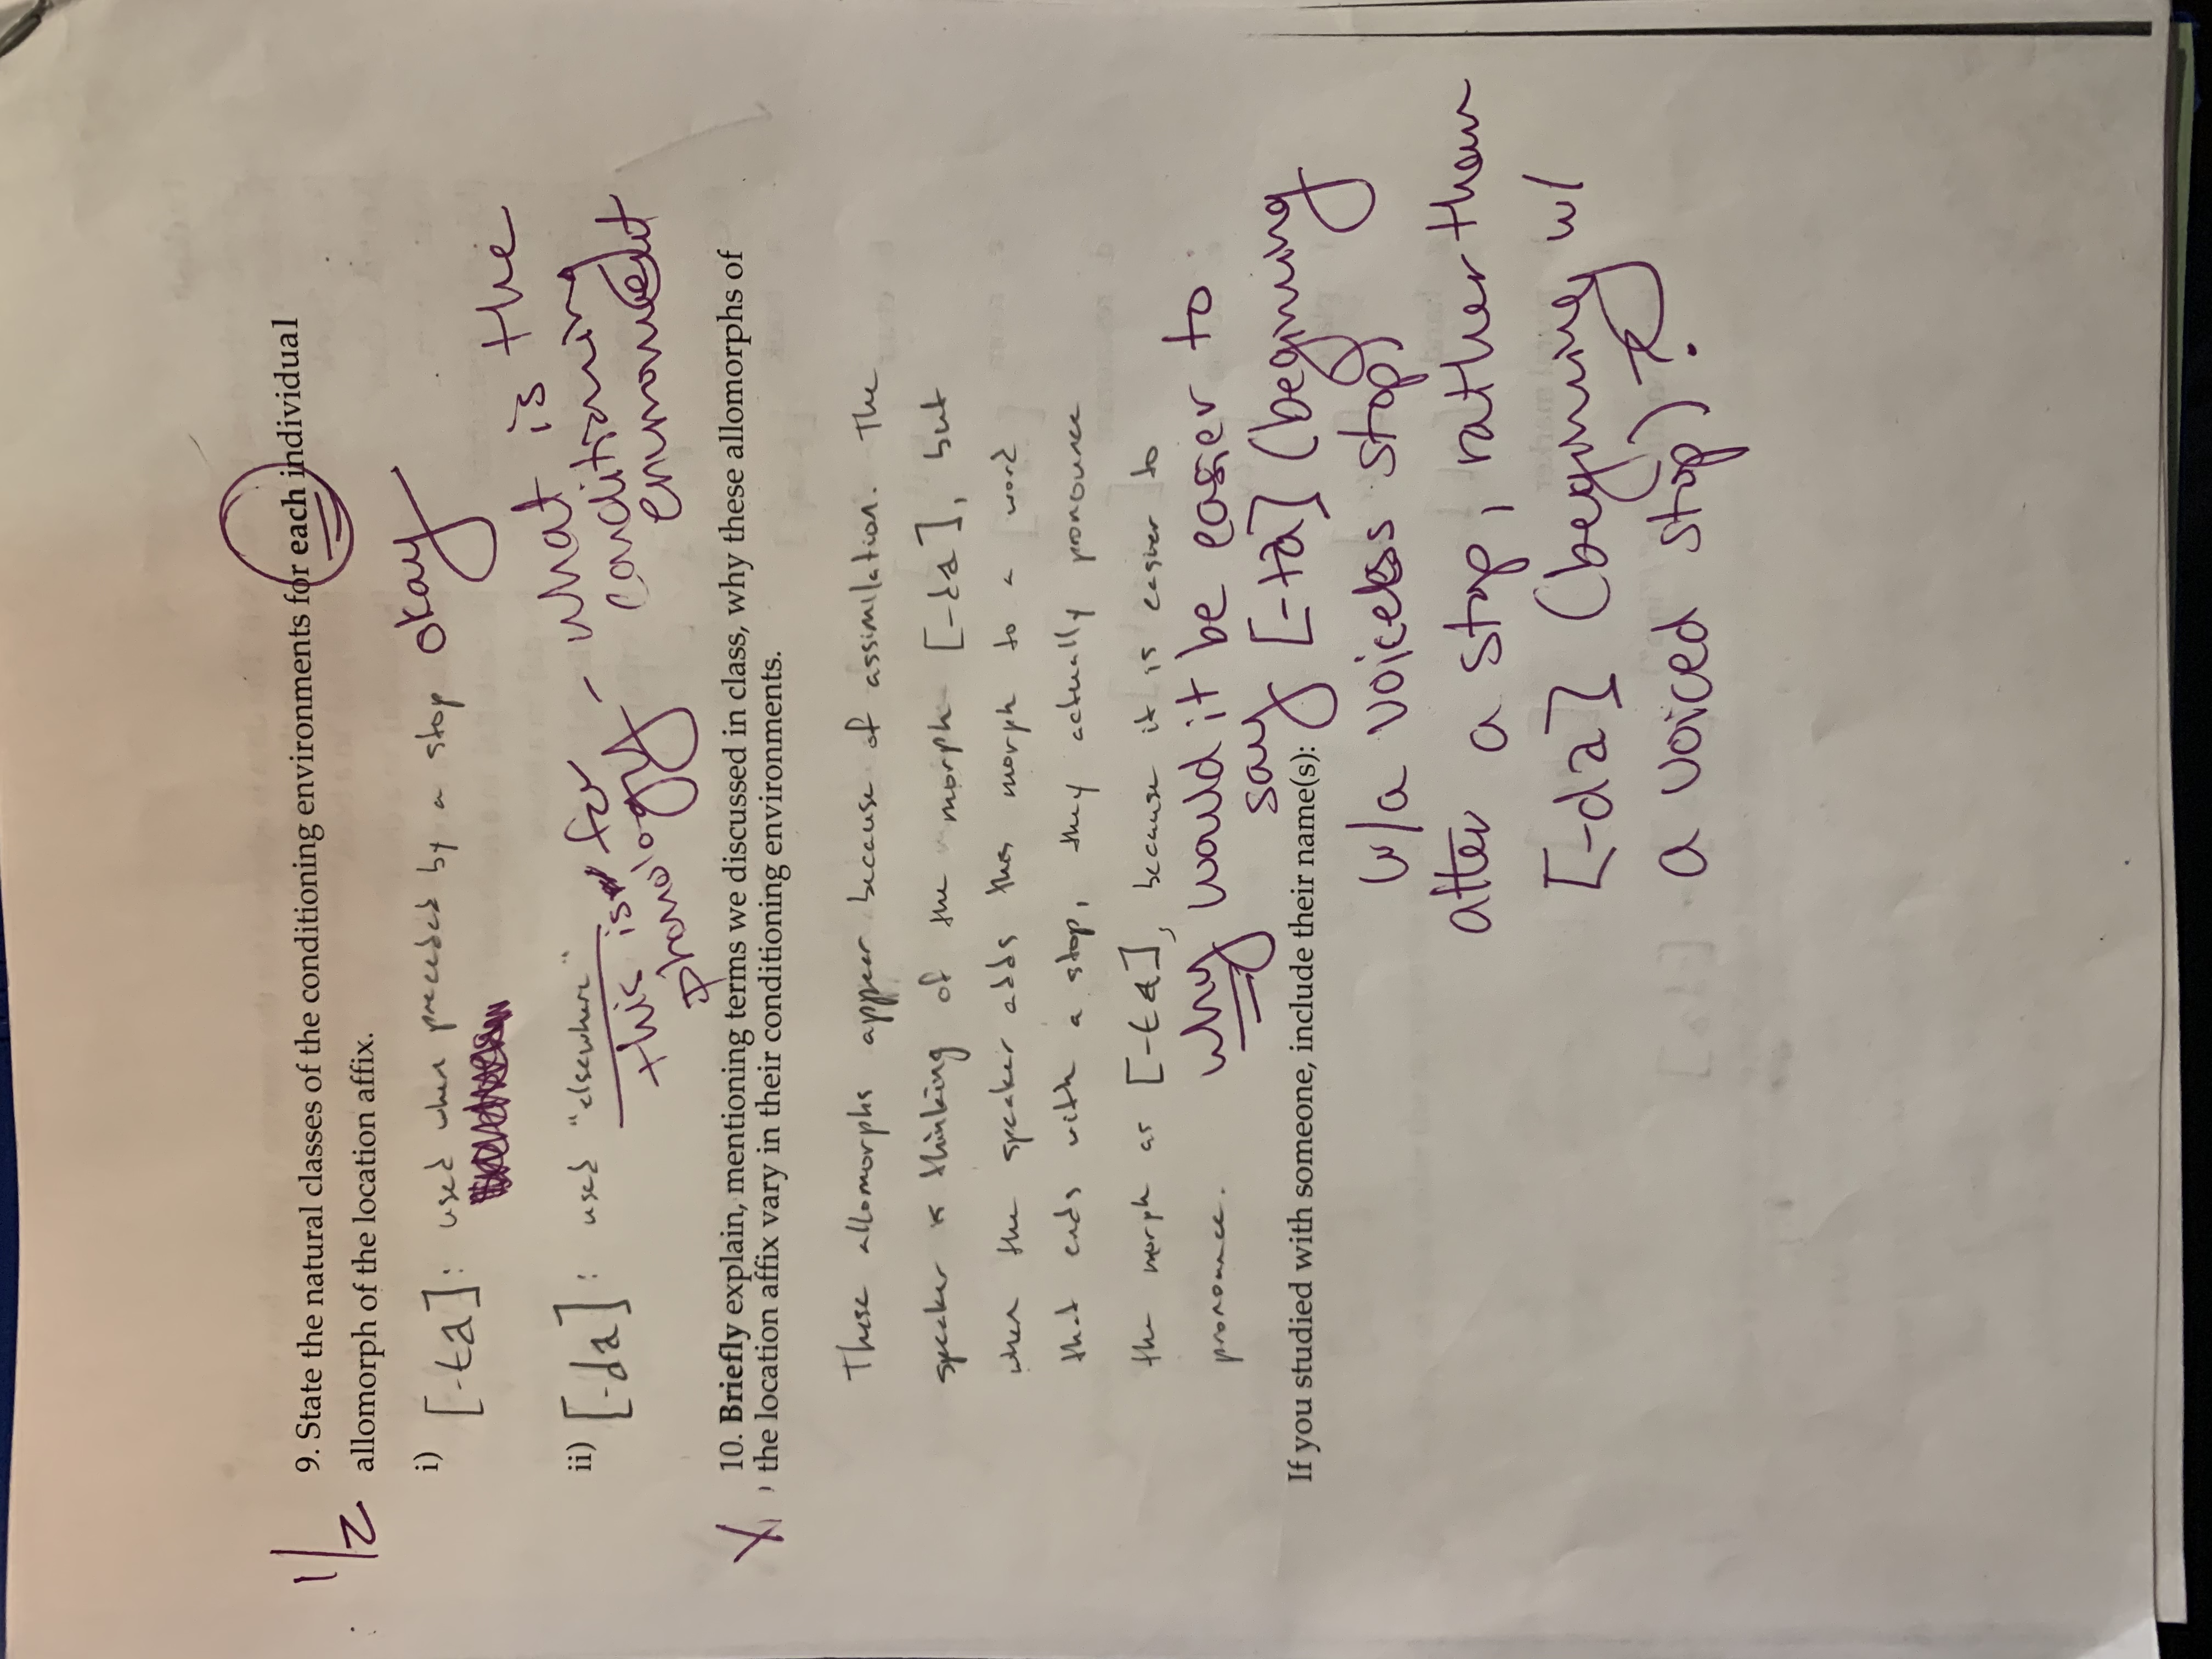 1/2
9. State the natural classes of the conditioning environments for each individual
allomorph of the location affix.
i) [-ta]: used when preceded by a stop okay
ii) [-da]: used "elsewhere"
this is for
phonology - what is the
conditioning
environment
X
10. Briefly explain, mentioning terms we discussed in class, why these allomorphs of
the location affix vary in their conditioning environments.
These allomorphs appear because of assimilation. The
speaker is thinking of the morph [-da], but
when the speaker adds this morph to a word
that ends with a stop, they actually pronounce
the morph as [-ta], because it is easier to
pronounce. why would it be easier to
say [-ta] (begining
If you studied with someone, include their name(s):
w/a voiceless stop)
after a stop, rather than
[-da] (begining w/
a voiced stop)?